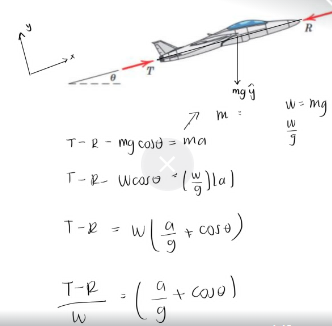 y
x
R
θ
T
mg ŷ
m =
w = mg
w/g
T - R - mg cosθ = ma
T - R - Wcosθ = (w/g)(a)
T - R = W(a/g + cosθ)
T-R/W = (a/g + cosθ)